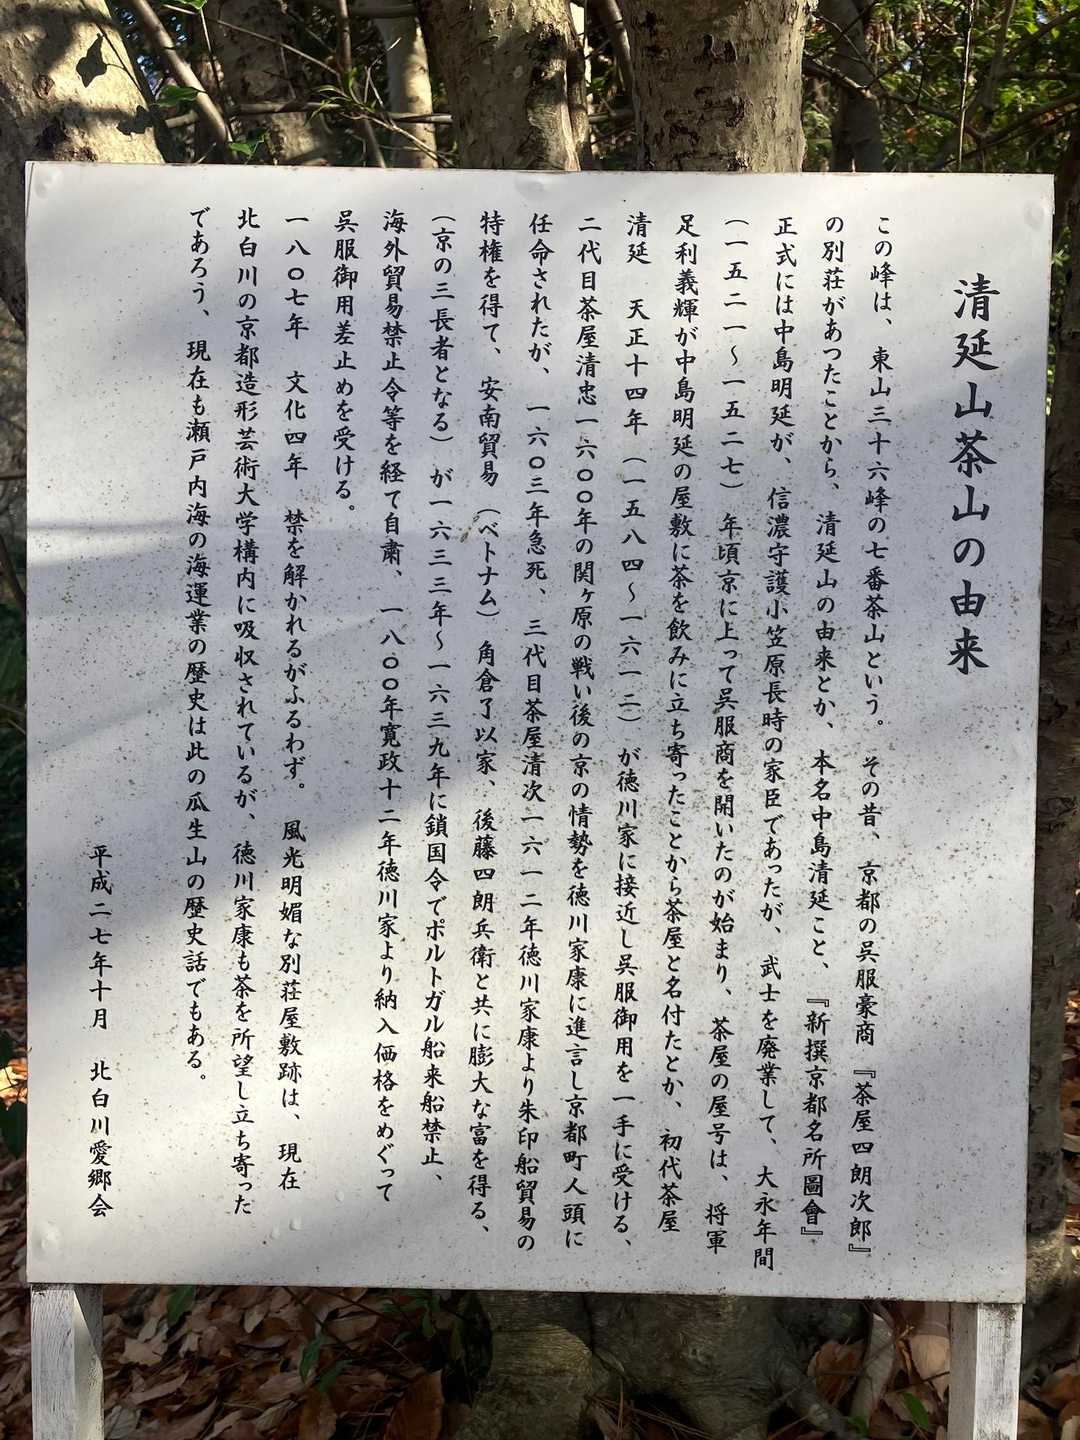 清延山茶山の由来
この峰は、東山三十六峰の七番茶山という。その昔、京都の呉服豪商『茶屋四朗次郎』
の別荘があつたことから、清延山の由来とか、本名中島清延こと、『新撰京都名所圖會』
正式には中島明延が、信濃守護小笠原長時の家臣であったが、武士を廃業して、大永年間
（一五二一～一五二七）年頃京に上って呉服商を開いたのが始まり、茶屋の屋号は、将軍
足利義輝が中島明延の屋敷に茶を飲みに立ち寄ったことから茶屋と名付たとか、初代茶屋
清延　天正十四年（一五八四～一六一二）が徳川家に接近し呉服御用を一手に受ける、
二代目茶屋清忠一六〇〇年の関ヶ原の戦い後の京の情勢を徳川家康に進言し京都町人頭に
任命されたが、一六〇三年急死、三代目茶屋清次一六一二年徳川家康より朱印船貿易の
特権を得て、安南貿易（ベトナム）角倉了以家、後藤四朗兵衛と共に膨大な富を得る、
（京の三長者となる）が一六三三年～一六三九年に鎖国令でポルトガル船来船禁止、
海外貿易禁止令等を経て自粛、一八〇〇年寛政十二年徳川家より納入価格をめぐって
呉服御用差止めを受ける。
一八〇七年　文化四年　禁を解かれるがふるわず。風光明媚な別荘屋敷跡は、現在
北白川の京都造形芸術大学構内に吸収されているが、徳川家康も茶を所望し立ち寄った
であろう、現在も瀬戸内海の海運業の歴史は此の瓜生山の歴史話でもある。
平成二七年十月　北白川愛郷会